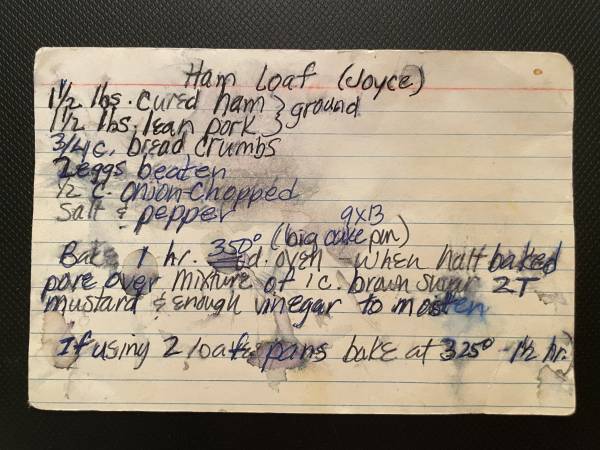 Ham Loaf (Joyce)
1½ lbs. cured ham } ground
1½ lbs. lean pork
3/4 c. bread crumbs
2 eggs beaten
½ c. onion-chopped
Salt & pepper
9x13
Bake 1 hr. 350° d. oven (big cake pan) - when half baked
pore over mixture of 1 c. brown sugar 2T
mustard & enough vinegar to moisten
If using 2 loaf pans bake at 325° - 1½ hr.)